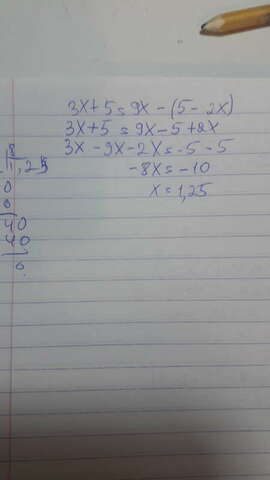 3x+5=9x-(5-2x)
3x+5=9x-5+2x
3x-9x-2x=-5-5
-8x=-10
x=1,25
8
1,25
0
0
40
40
0